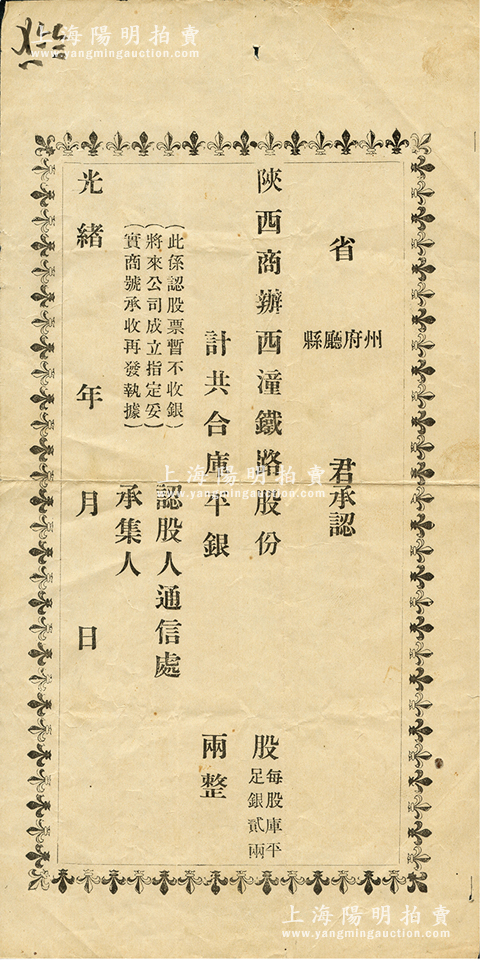 省 州府廳縣 君承認
陝西商辦西潼鐵路股份 股 每股庫平足銀貳兩
計共合庫平銀 兩整
(此係認股票暫不收銀)
(將來公司成立指定妥)
(實商號承收再發執據)
認股人通信處
承集人
光緒 年 月 日
上海陽明拍賣
www.yangmingauction.com
上海陽明拍賣
www.yangmingauction.com
上海陽明拍賣
www.yangmingauction.com